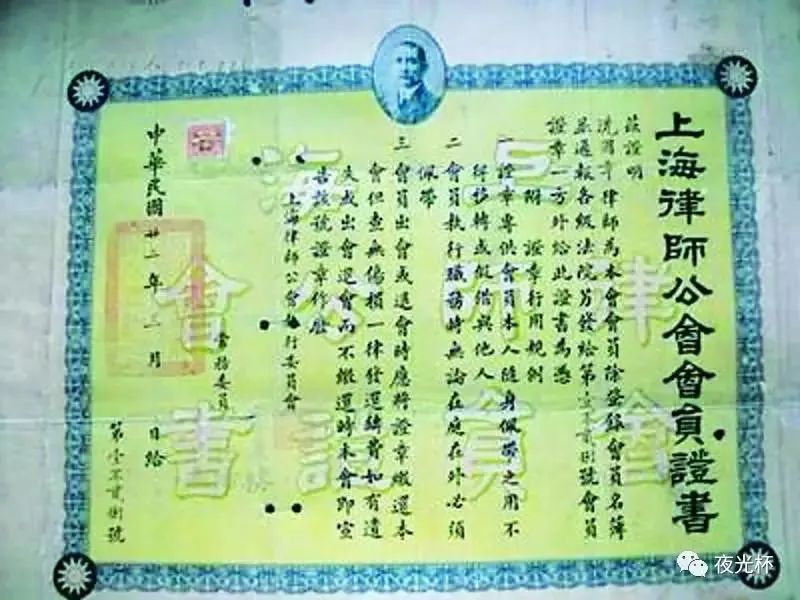 上海律師公會會員證書
茲證明
律師為本會會員除登錄會員名簿
並通報各級法院另發給第號會員
證章一方外給此證書為憑
附 證章行用規則
一 證章專供會員本人隨身佩帶之用不
得移轉或假借與他人
二 會員執行職務時無論在庭在外必須
佩帶
三 會員出會或退會時應將證章繳還本
會但查無傷損一律發還鑄費如有遺
失或出會退會而不繳還時本會即宣
告該號證章作廢
上海律師公會執行委員會
常務委員
中華民國廿二年二月 日給
第 號
上海
律師公會
會員證書
夜光杯